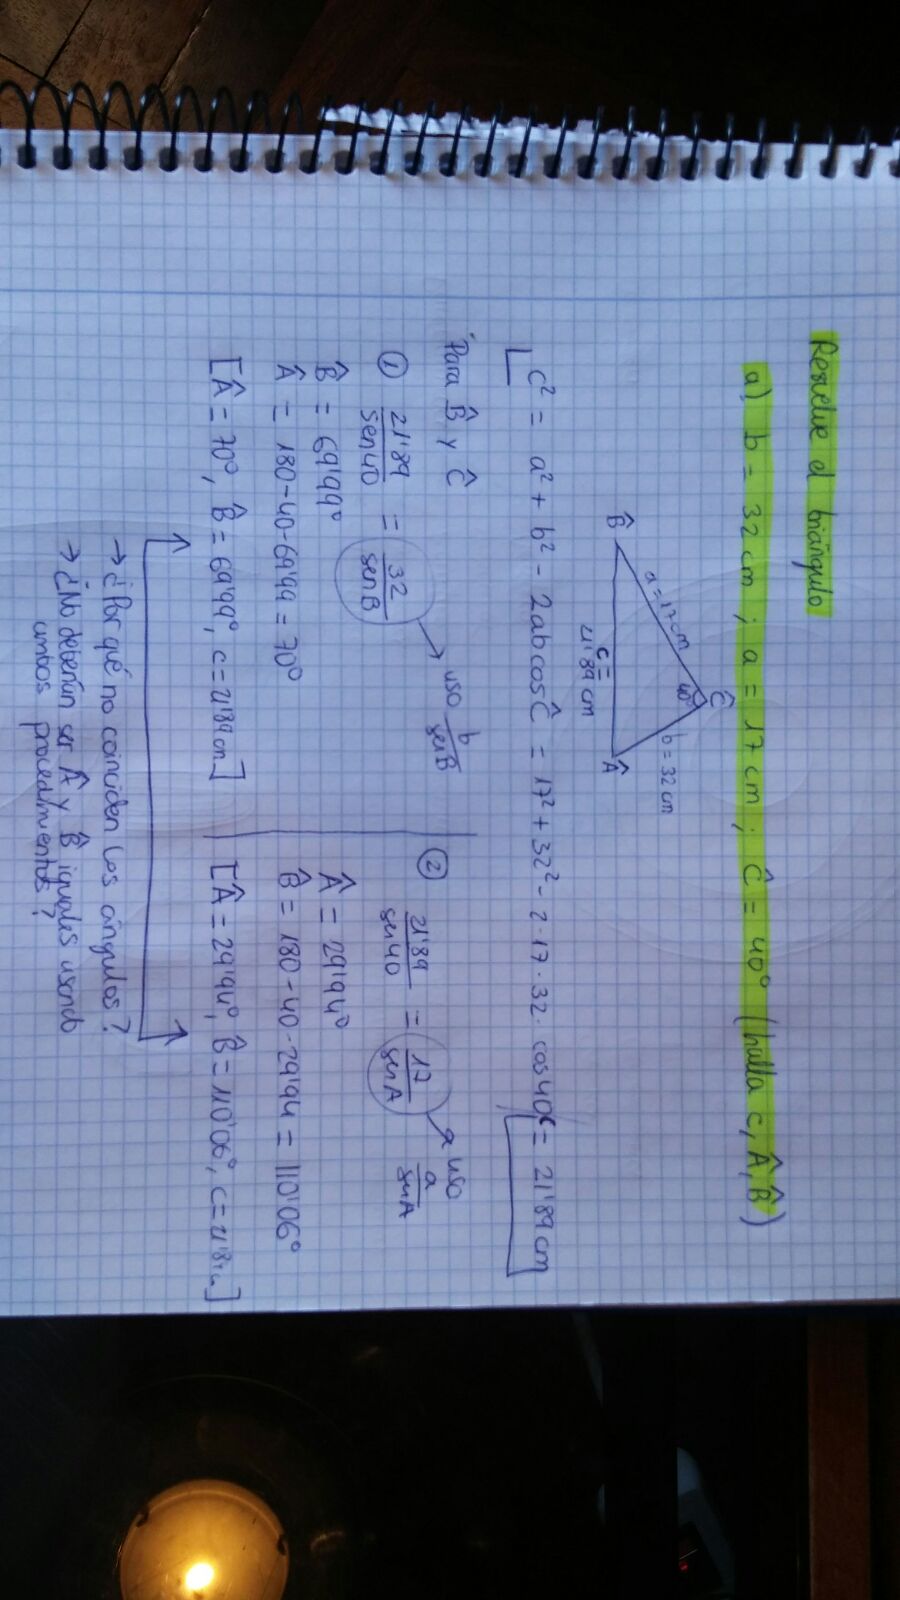 Resuelve el triángulo
a) b = 32 cm ; a = 17 cm ; Ĉ = 40° (halla c, Â, B̂)
Ĉ
40°
a = 17 cm
b = 32 cm
B̂
Â
c =
21'89 cm
c² = a² + b² - 2ab cos Ĉ = 17² + 32² - 2·17·32·cos 40 = 21'89 cm
Para B̂ y Ĉ
① 21'89/sen 40 = 32/sen B
uso b/sen B
B̂ = 69'99°
Â = 180-40-69'99 = 70°
[Â = 70°, B̂ = 69'99°, c = 21'89 cm]
② 21'89/sen 40 = 17/sen A
uso a/sen A
Â = 29'94°
B̂ = 180-40-29'94 = 110'06°
[Â = 29'94°, B̂ = 110'06°, c = 21'89 cm]
→ ¿Por qué no coinciden los ángulos?
→ ¿No deberían ser Â y B̂ iguales usando
ambos procedimientos?